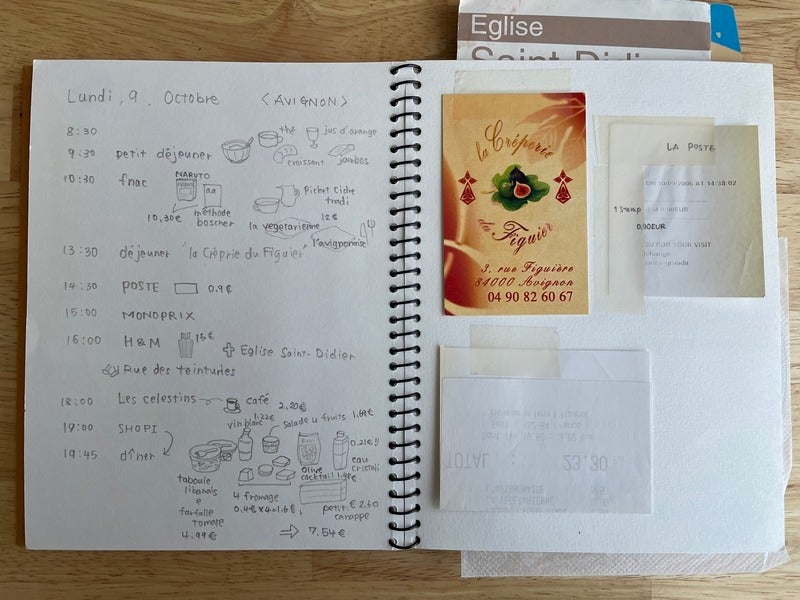 Lundi, 9, Octobre <AVIGNON>
8:30
thé jus d'orange
9:30 petit déjeuner
croissant jambos
10:30 fnac
NARUTO
Pichet Cidre
tradi
10,30€ méthode
boscher
12€
la vegetarienne
l'avignonaise
13:30 déjeuner "la Crêprie du Figuier"
14:30 POSTE 0.9€
15:00 MONOPRIX
16:00 H&M 15€
Eglise Saint-Didier
Rue des teinturies
18:00 Les celestins café 2,20€
19:00 SHOPI
vin blanc 1.22€
salade u fruits 1.69€
0.21€!!
eau
cristali
19:45 dîner
taboule
libanais
e
farfalle
tomate
4.99€
4 fromage
0.4€×4=1.6€
olive
cocktail 1.49€
petit €2.60
canappe
⇒ 7.54€
Eglise
Saint-Didier
la Crêperie
du Figuier
3, rue Figuière
84000 Avignon
04 90 82 60 67
LA POSTE
ON 10/09/2006 AT 14:38:02
1 Stamp 0,90EUR
0,90EUR
FOR YOUR VISIT
TOTAL : 23.30